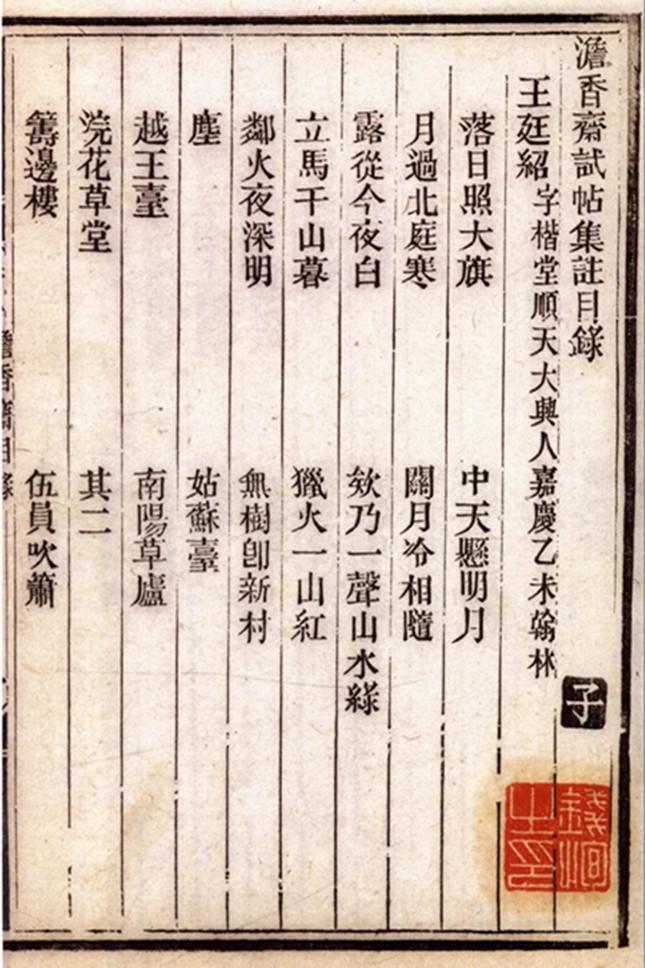 澹香齋試帖集註目錄 子
王廷紹 字楷堂順天大興人嘉慶乙未翰林
落日照大旗 中天懸明月
月過北庭寒 關月冷相隨
露從今夜白 欸乃一聲山水綠
立馬千山暮 獵火一山紅
鄰火夜深明 無樹卽新村
塵 姑蘇臺
越王臺 南陽草廬
浣花草堂 其二
籌邊樓 伍員吹簫
澹香齋目錄
錢
之印